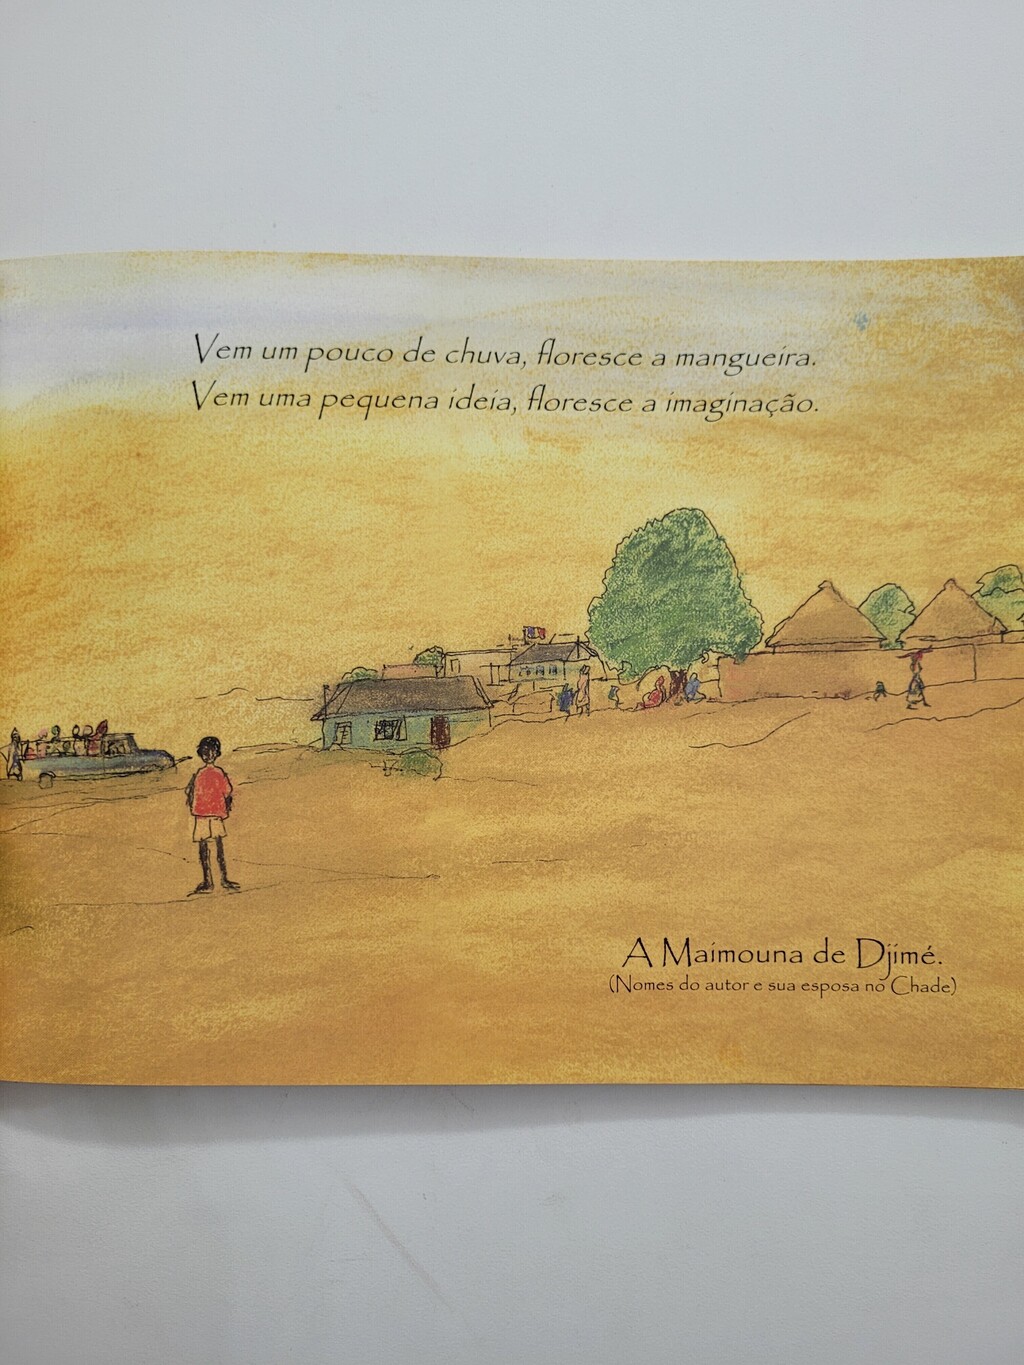 Vem um pouco de chuva, floresce a mangueira.
Vem uma pequena ideia, floresce a imaginação.
A Maimouna de Djimé.
(Nomes do autor e sua esposa no Chade)